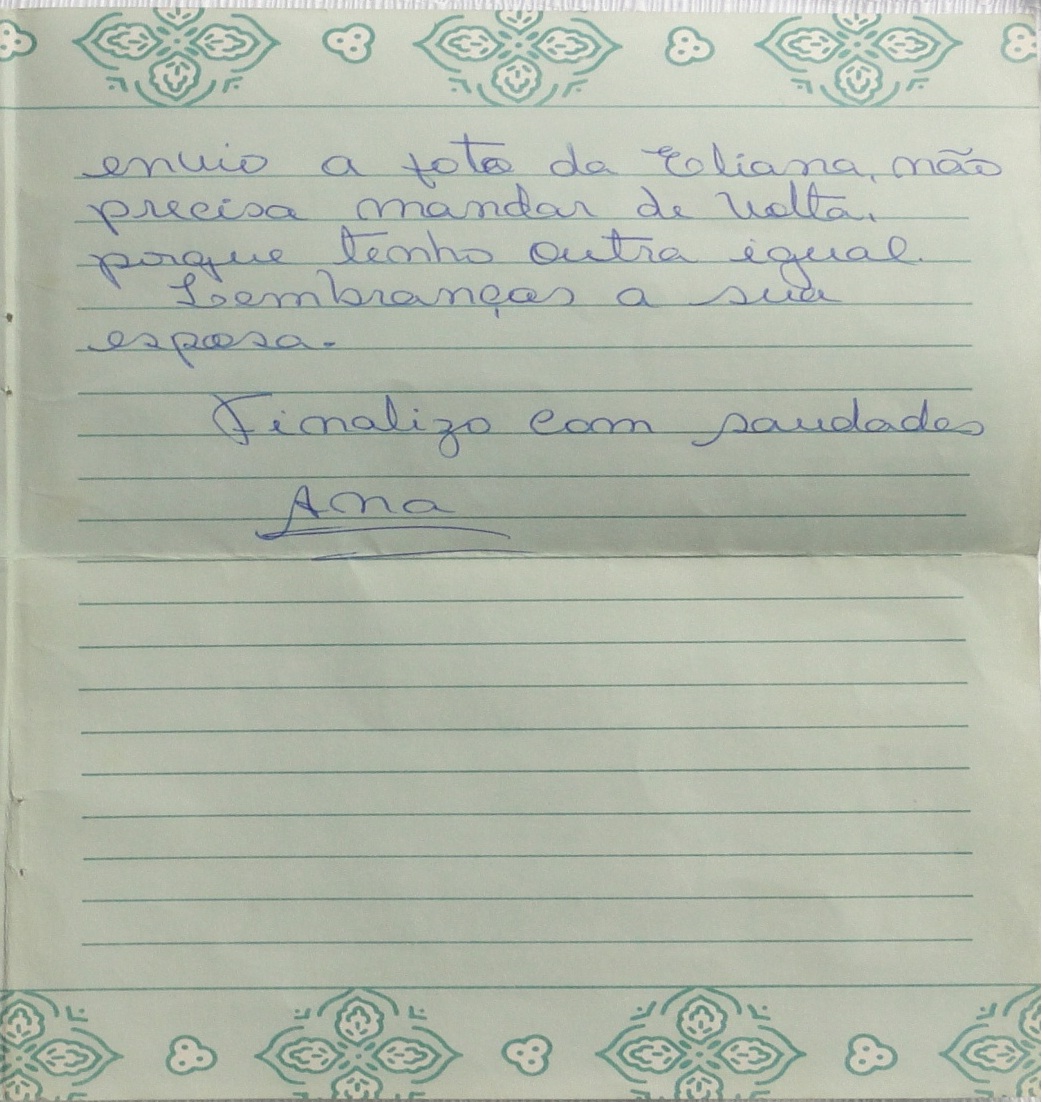 envio a foto da Eliana, não
precisa mandar de volta,
porque tenho outra igual.
Lembranças a sua
esposa.
Finalizo com saudades
Ana